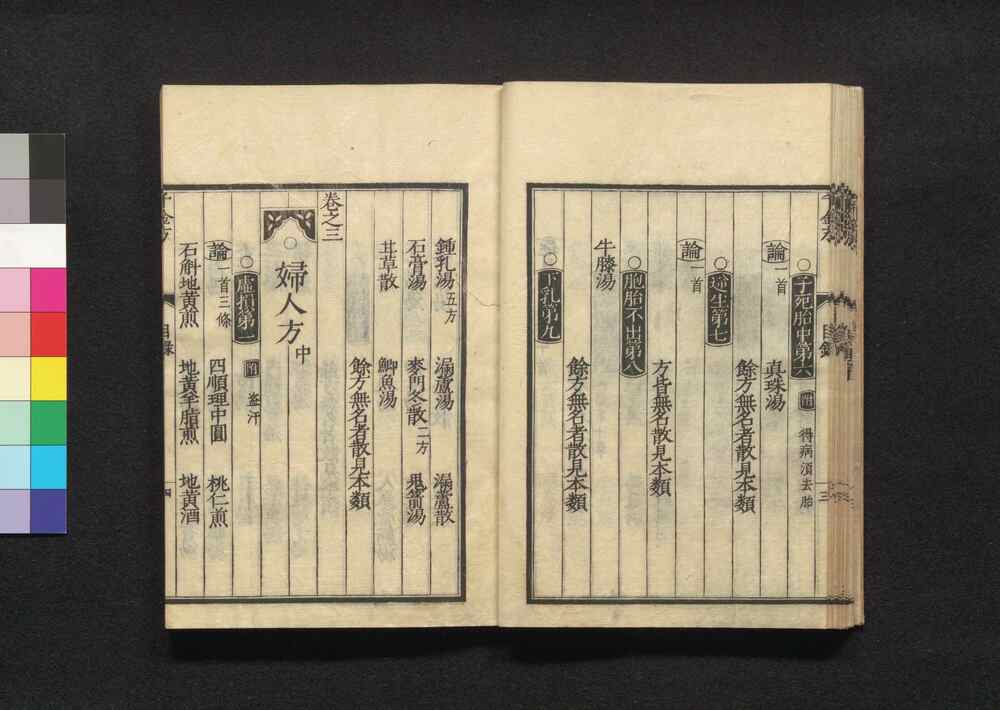 子死胎中第六 附 得病須去胎
論一首
真珠湯
逆生第七
餘方無名者散見本類
論一首
方皆無名散見本類
胞胎不出第八
牛膝湯
餘方無名者散見本類
下乳第九
鍾乳湯五方 漏蘆湯 漏蘆散
石膏湯 麥門冬散二方 鬼箭湯
甘草散 鯽魚湯
餘方無名者散見本類
卷之三
婦人方中
虛損第一 附 盜汗
論一首三條 四順理中圓 桃仁煎
石斛地黃煎 地黃羊脂煎 地黃酒
千金方 目錄 四